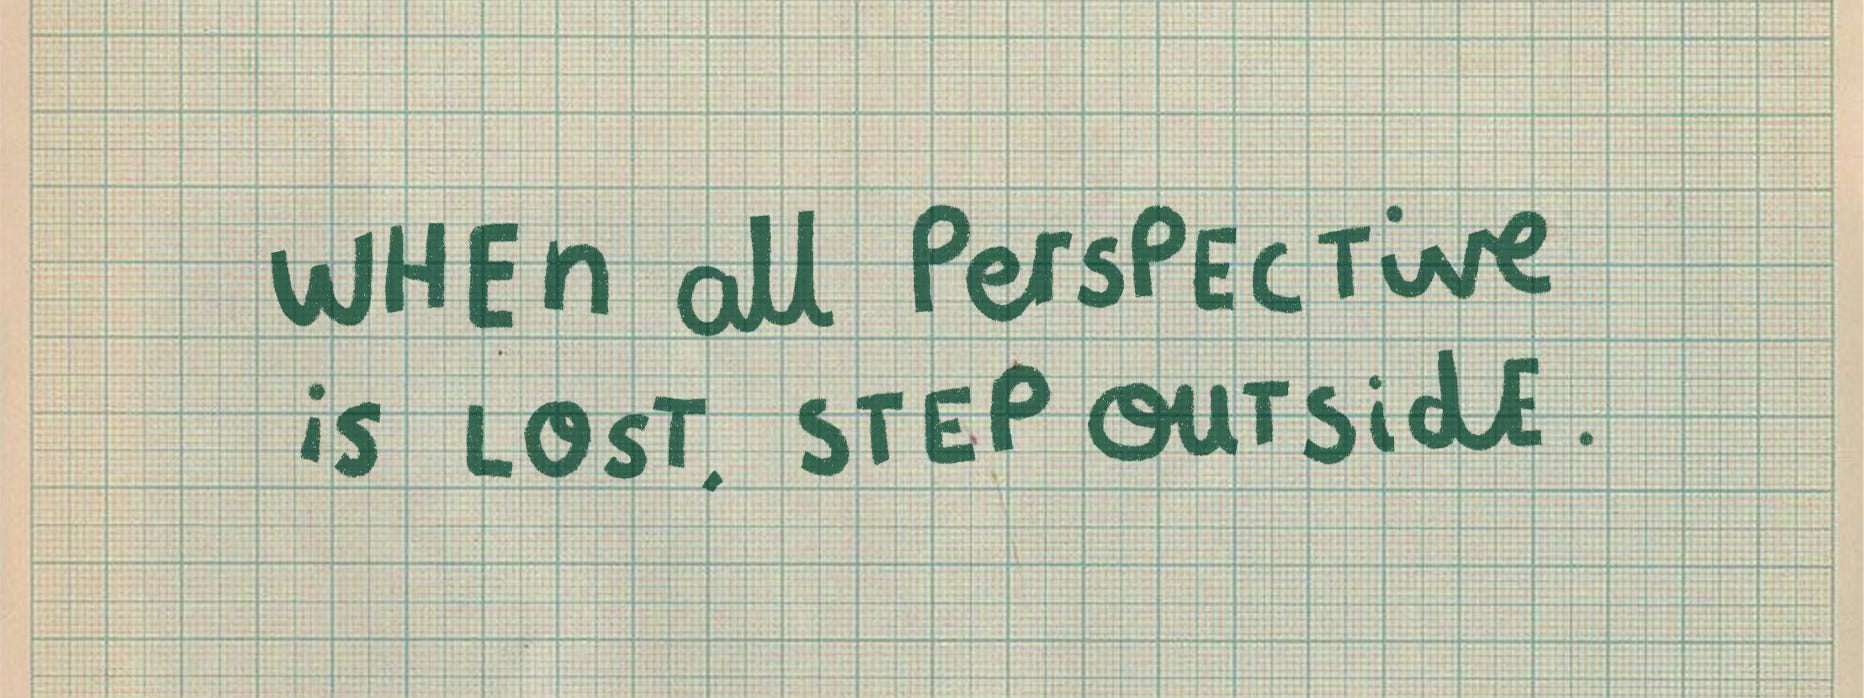 WHEn all PerSPECTive
is LOST, STEP OUTSidE.